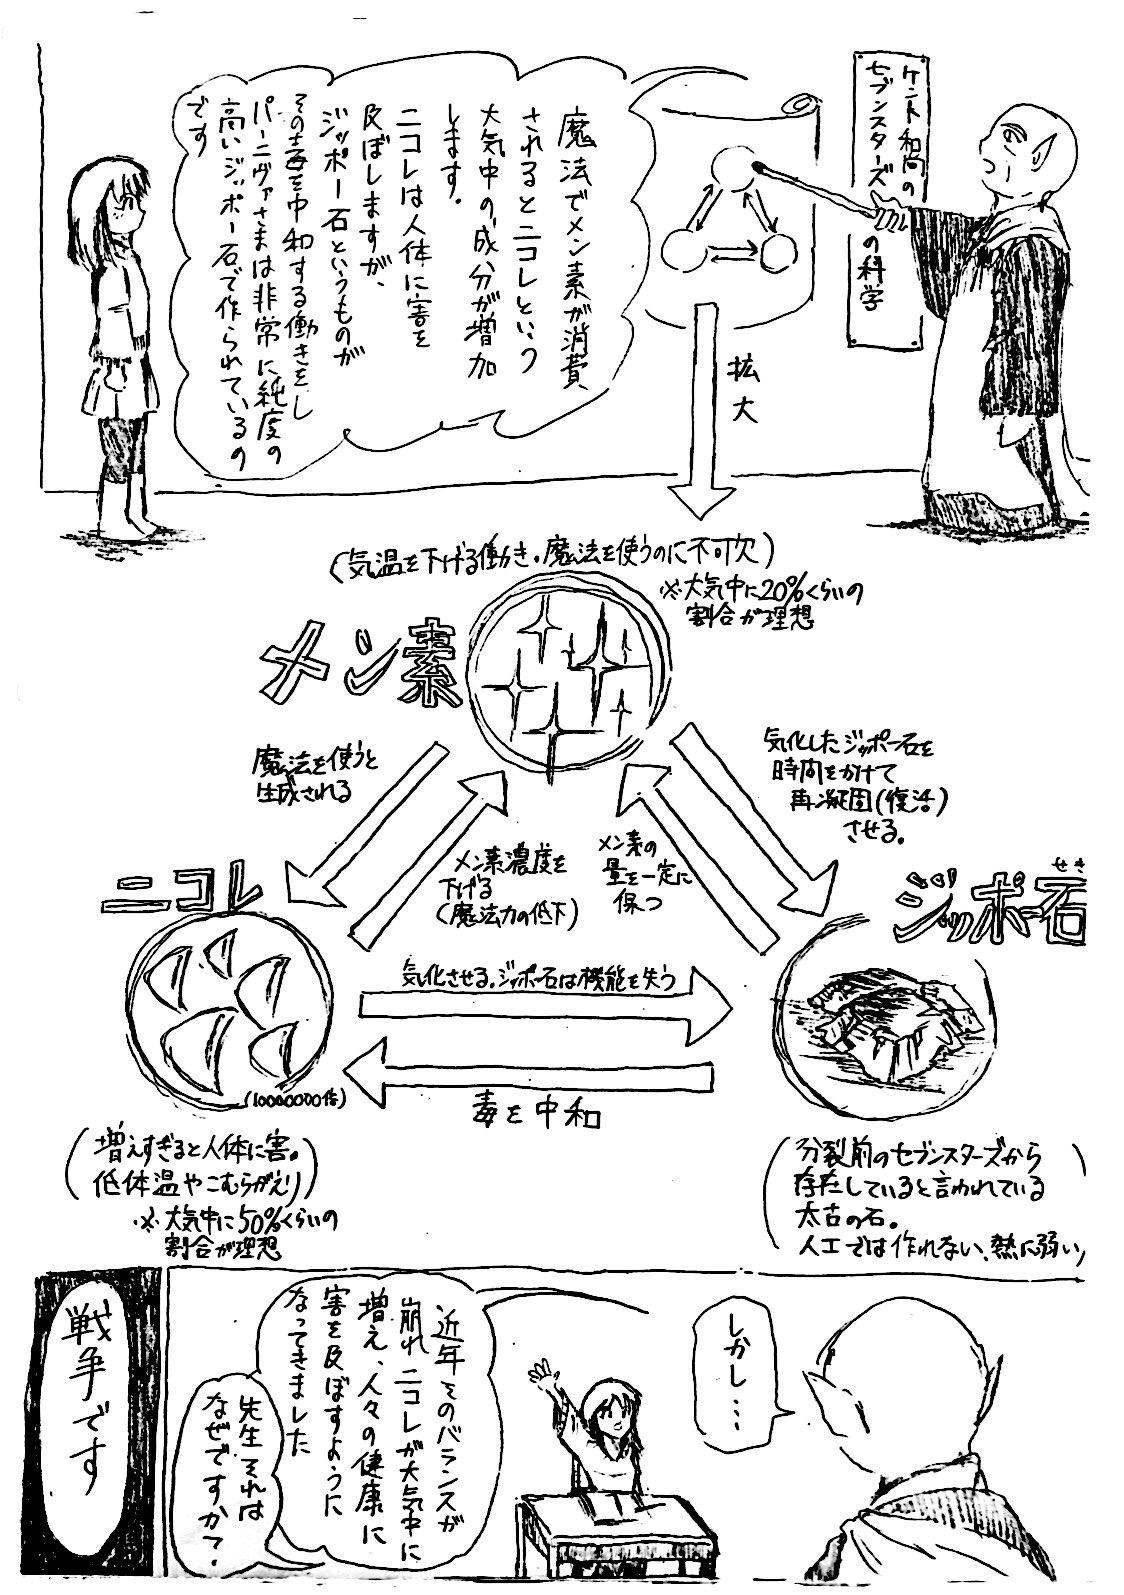 ケント和尚の
セブンスターズの科学
魔法でメン素が消費
されるとニコレという
大気中の成分が増加
します。
ニコレは人体に害を
及ぼしますが、
ジッポー石というものが
その毒を中和する働きをし
パーニヴァさまは非常に純度の
高いジッポー石で作られているの
です
拡大
(気温を下げる働き。魔法を使うのに不可欠)
※大気中に20%くらいの
割合が理想
メン素
魔法を使うと
生成される
気化したジッポー石を
時間をかけて
再凝固(復活)
させる。
メン素濃度を
下げる
(魔法力の低下)
メン素の
量を一定に
保つ
ニコレ
せき
ジッポー石
気化させる。ジッポー石は機能を失う
毒を中和
(10000000倍)
(増えすぎると人体に害。
低体温やこむらがえり)
※大気中に50%くらいの
割合が理想
(分裂前のセブンスターズから
存在していると言われている
太古の石。
人工では作れない、熱に弱い)
しかし…
近年そのバランスが
崩れニコレが大気中に
増え、人々の健康に
害を及ぼすように
なってきました
先生それは
なぜですか?
戦争です